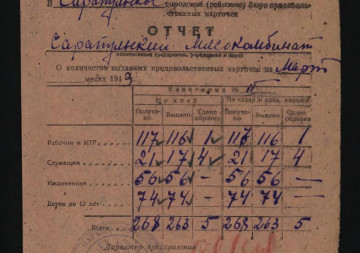 В Сарапульское городское (районное) бюро продоволь-
ственных карточек
ОТЧЕТ
Сарапульский Мясокомбинат
О количестве выданных продовольственных карточек на Март
месяц 194
Категория № II
Получе-но Выдано Сдано обратно Получе-но Выдано Сдано обратно
Рабочим и ИТР 117 116 1 117 116 1
Служащим 21 17 4 21 17 4
Иждивенцам 56 56 — 56 56 —
Детям до 12 лет 74 74 — 74 74 —
Всего 268 263 5 268 263 5
Директор предприятия